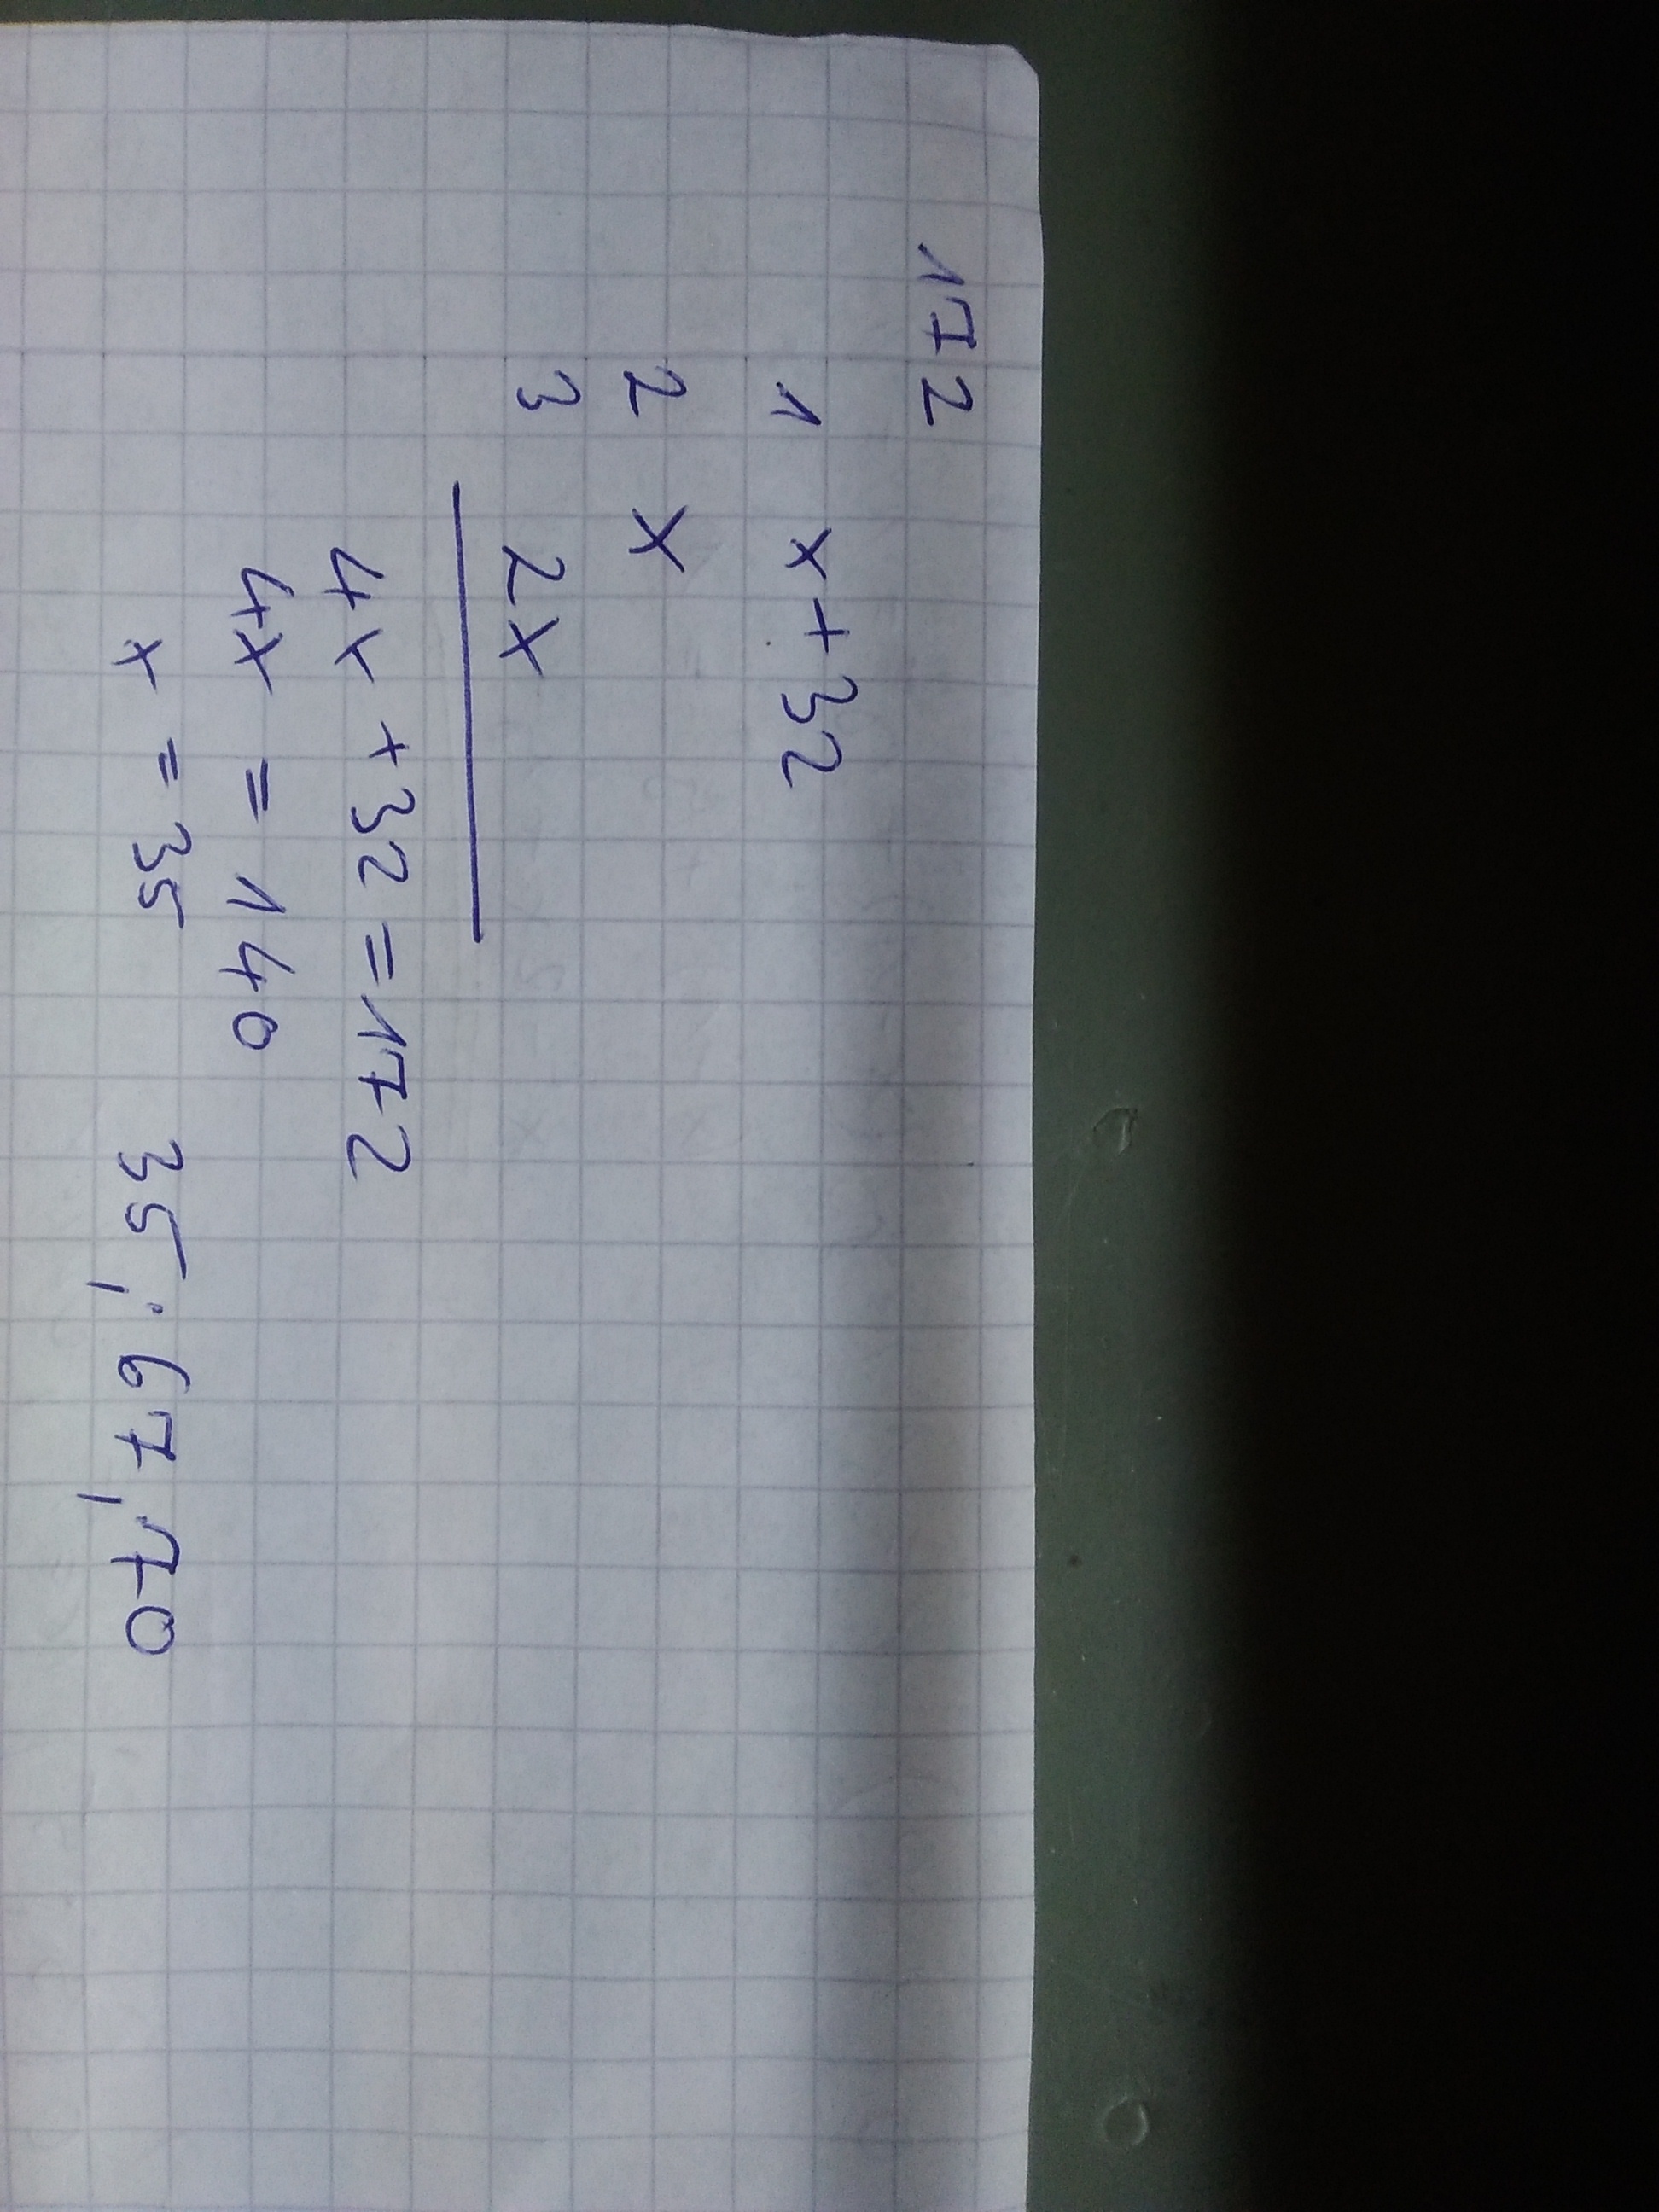 172
1 x+32
2 x
3 2x
4x+32=172
4x = 140
x = 35 35, 67, 70